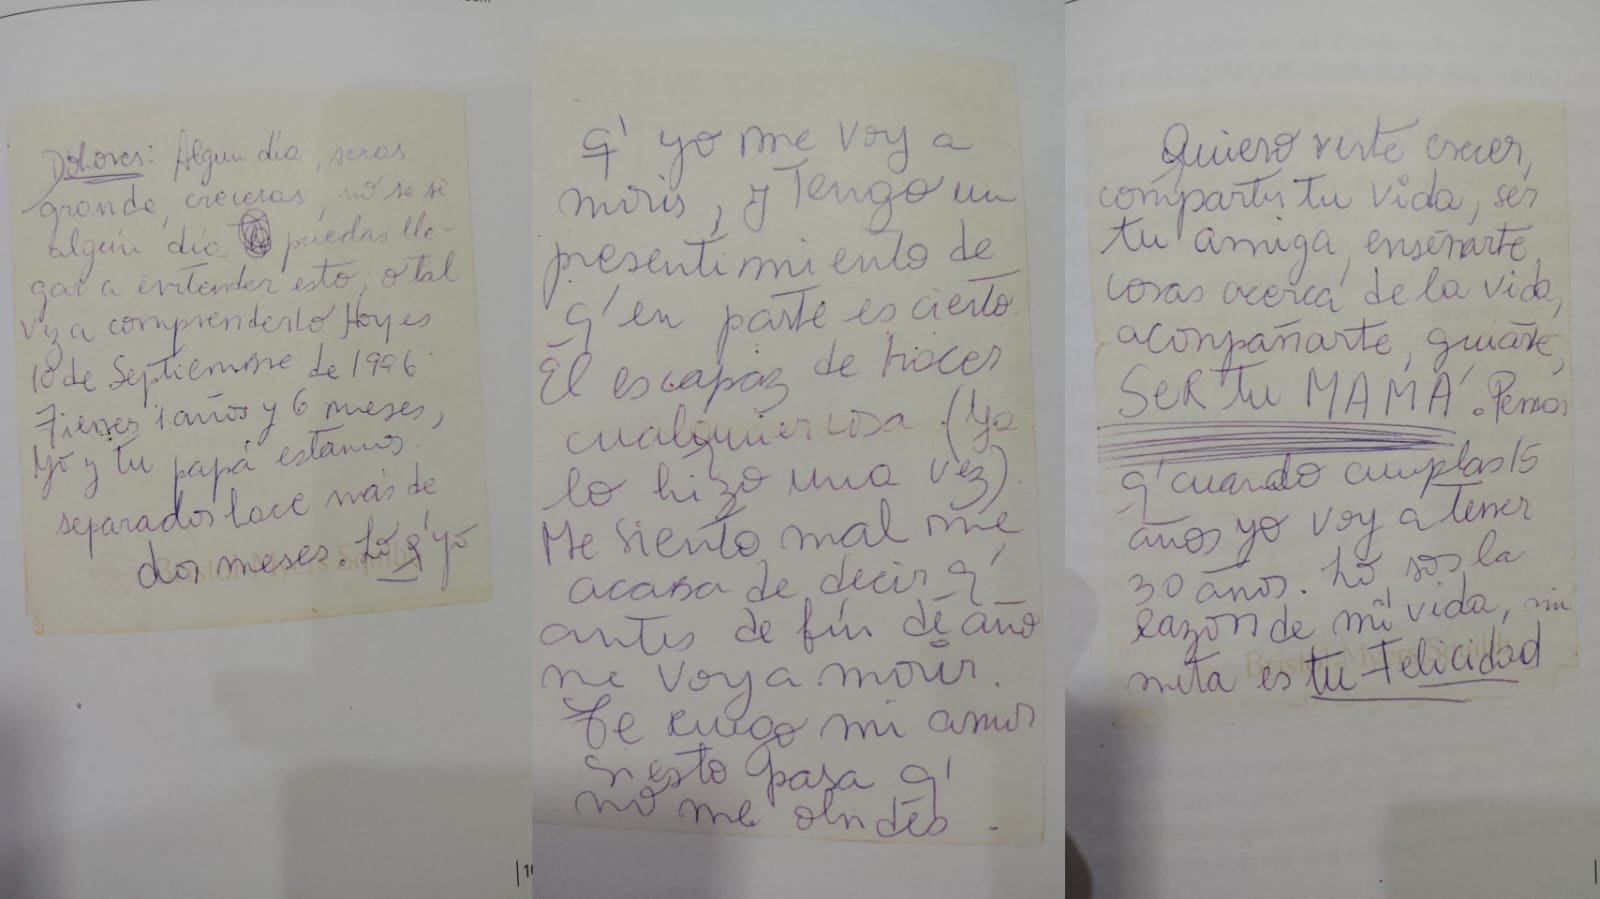 Dolores: Algun dia, seras
grande, creceras, no se si
algún día puedas lle-
gar a entender esto, o tal
vez a comprenderlo Hoy es
10 de Septiembre de 1996.
Tienes 1 años y 6 meses,
Yo y tu papá estamos
separados hace más de
dos meses. Ló q' yo
q' yo me voy a
morir, y Tengo un
presentimiento de
q' en parte es cierto.
El es capaz de hacer
cualquier cosa. (Ya
lo hizo una vez)
Me siento mal me
acaba de decir q'
antes de fin de año
me voy a morir.
Te ruego mi amor
si esto pasa q'
no me olvides.
Quiero verte crecer,
compartir tu vida, ser
tu amiga, enseñarte
cosas acerca de la vida,
acompañarte, guiarte,
SER tu MAMÁ. Pensar
q' cuando cumplas 15
años yo voy a tener
30 años. Ló, sos la
razón de mi vida, mi
meta es tu Felicidad
Bristol-Myers Squibb